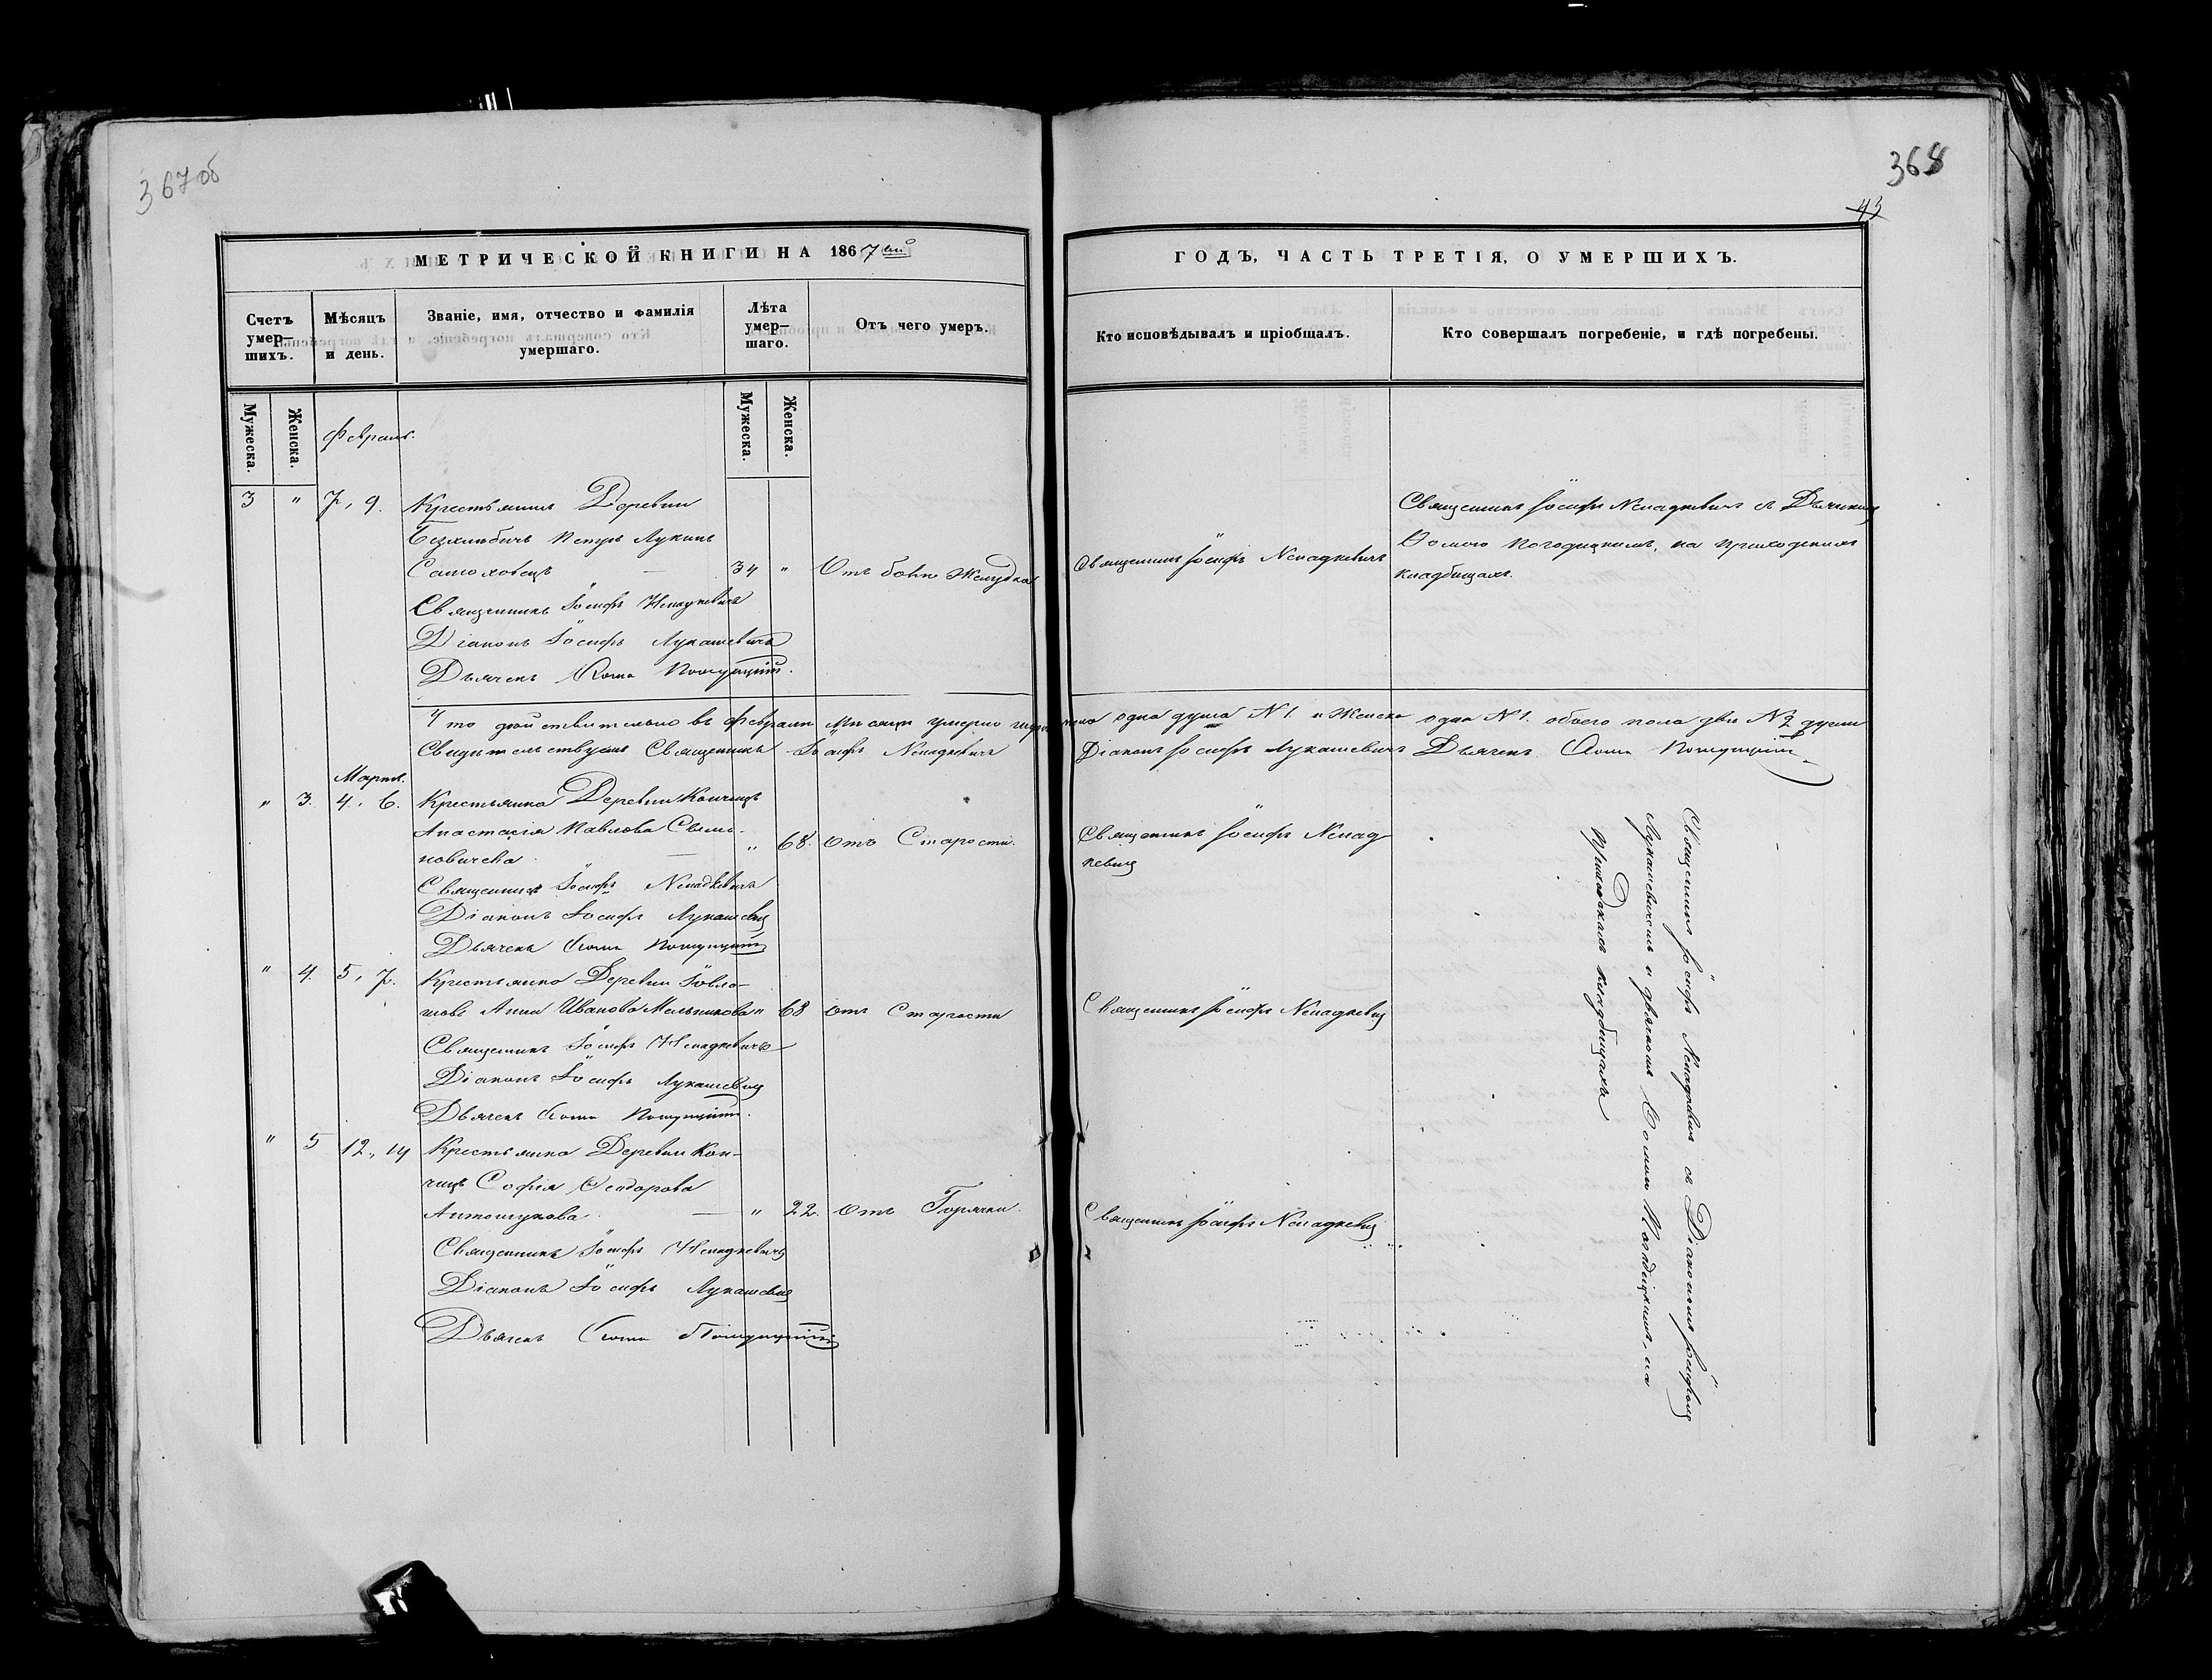 367 об
368
43
МЕТРИЧЕСКОЙ КНИГИ НА 1867 ый
ГОДЪ, ЧАСТЬ ТРЕТІЯ, О УМЕРШИХЪ.
Счетъ умер-шихъ.
Мѣсяцъ и день.
Званіе, имя, отчество и фамилія умершаго.
Лѣта умер-шаго.
Отъ чего умеръ.
Кто исповѣдывалъ и пріобщалъ.
Кто совершалъ погребеніе, и гдѣ погребены.
Мужеска.
Женска.
Мужеска.
Женска.
Февраль.
3 " 7, 9. Крестьянинъ Деревни
Петръ Лукинъ
34 " Отъ боли Желудка
Священникъ Іосифъ Ненадкевичъ
Священникъ Іосифъ Ненадкевичъ съ Дьячкомъ
Ѳомою на приходскомъ
кладбищахъ.
Священникъ Іосифъ Ненадкевичъ
Діаконъ Іосифъ Лукашевичъ
Дьячекъ Ѳома
Что дѣйствительно въ Февралѣ Мѣсяцѣ умерло одна душа № 1. и Женска одна № 1. обоего пола двѣ № 2 души
Свидѣтельствуемъ Священникъ Іосифъ Ненадкевичъ Діаконъ Іосифъ Лукашевичъ Дьячекъ Ѳома
Мартъ.
" 3. 4, 6. Крестьянка Деревни Кончицъ
Анастасія Павлова Сымо-
новичева " 68. отъ Старости.
Священникъ Іосифъ Ненад
кевич
Священникъ Іосифъ Ненадкевичъ
Діаконъ Іосифъ Лукашевич
Дьячекъ Ѳома
" 4. 5, 7. Крестьянка Деревни
Анна Иванова Мельникова " 68 отъ Старости
Священникъ Іосифъ Ненадкевич
Священникъ Іосифъ Ненадкевичъ
Діаконъ Іосифъ Лукашевич
Дьячекъ Ѳома
" 5 12, 14 Крестьянка Деревни Кон-
чицъ Софія Ѳеодорова
" 22. отъ Горячки.
Священникъ Іосифъ Ненадкевич
Священникъ Іосифъ Ненадкевичъ
Діаконъ Іосифъ Лукашевич
Дьячекъ Ѳома
Священникъ Іосифъ Ненадкевичъ съ Діакономъ Іосифомъ
Лукашевичемъ и дьячкомъ Ѳомою на
кладбищахъ